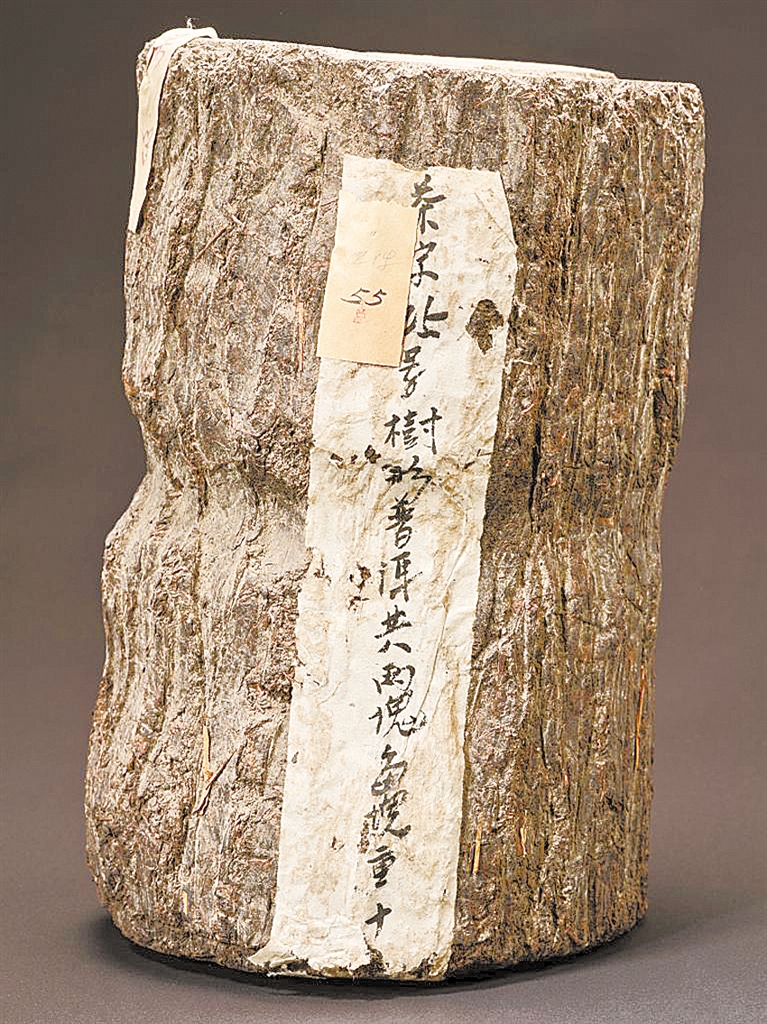 茶字 号樹形普洱共兩塊每塊重十
55